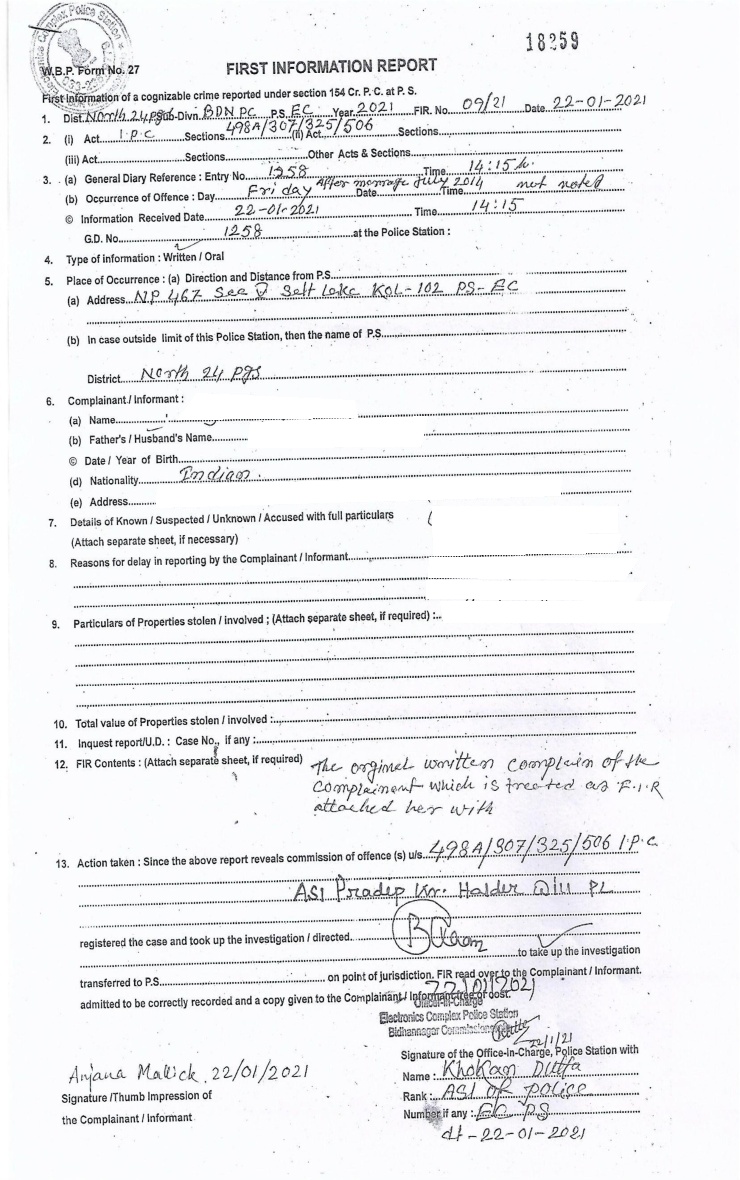 18259
W.B.P. Form No. 27
FIRST INFORMATION REPORT
First Information of a cognizable crime reported under section 154 Cr. P. C. at P. S.
1. Dist. North 24 pgs Sub-Divn. BDN PC P.S. EC Year 2021 FIR. No. 09/21 Date 22-01-2021
2. (i) Act I.P.C Sections 498A/307/325/506 (ii) Act Sections
(iii) Act Sections Other Acts & Sections
3. (a) General Diary Reference : Entry No. 1258 Time 14:15 h.
(b) Occurrence of Offence : Day Friday After marrage July 2014 Date Time not noted
© Information Received Date 22-01-2021 Time 14:15
G.D. No. 1258 at the Police Station :
4. Type of information : Written / Oral
5. Place of Occurrence : (a) Direction and Distance from P.S.
(a) Address NP 467 Sec V Selt Lake KOL-102 PS-EC
(b) In case outside limit of this Police Station, then the name of P.S.
District North 24 pgs
6. Complainant / Informant :
(a) Name
(b) Father's / Husband's Name
© Date / Year of Birth
(d) Nationality Indian.
(e) Address
7. Details of Known / Suspected / Unknown / Accused with full particulars
(Attach separate sheet, if necessary)
8. Reasons for delay in reporting by the Complainant / Informant
9. Particulars of Properties stolen / involved ; (Attach separate sheet, if required) :
10. Total value of Properties stolen / involved :
11. Inquest report/U.D. : Case No., if any :
12. FIR Contents : (Attach separate sheet, if required) The orginel written complain of the
complainent which is treated as F.I.R
attached her with
13. Action taken : Since the above report reveals commission of offence (s) u/s. 498A/307/325/506 I.P.C
ASI Pradip Kr. Halder will PL
registered the case and took up the investigation / directed.
to take up the investigation
transferred to P.S. on point of jurisdiction. FIR read over to the Complainant / Informant.
admitted to be correctly recorded and a copy given to the Complainant / Informant free of cost.
22/01/2021
Officer-in-Charge
Electronics Complex Police Station
Bidhannagar Commissionerate
22/1/21
Signature of the Office-In-Charge, Police Station with
Anjana Mallick, 22/01/2021
Name : Khokan Dutta
Signature /Thumb Impression of
Rank : ASI of police
the Complainant / Informant
Number if any : EC PS
dt - 22-01-2021